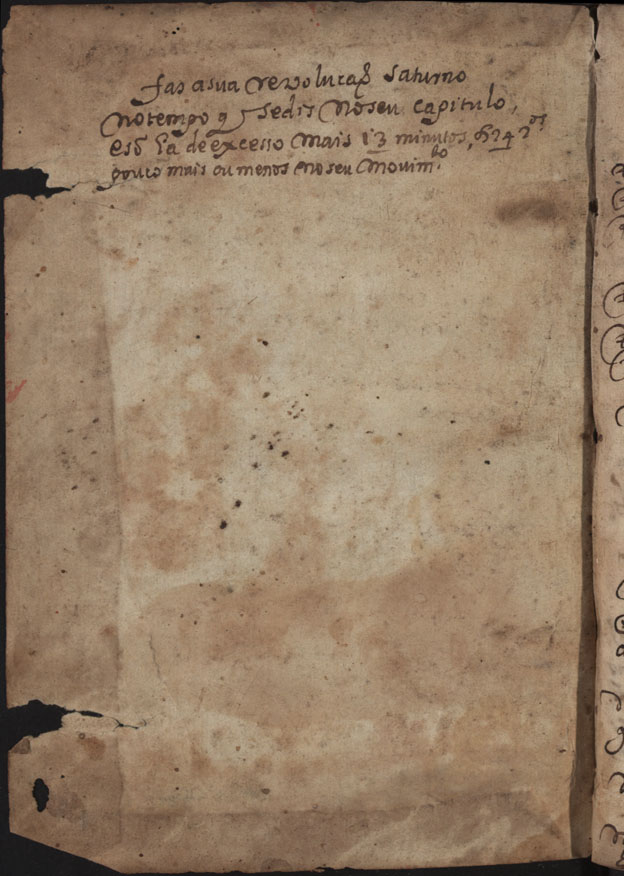 fas asua revolucaõ saturno
no tempo q̃ sedis no seu capitulo,
esó ha de excesso mais 13 minutos, 24 2.os
pouco mais ou menos no seu movim.to